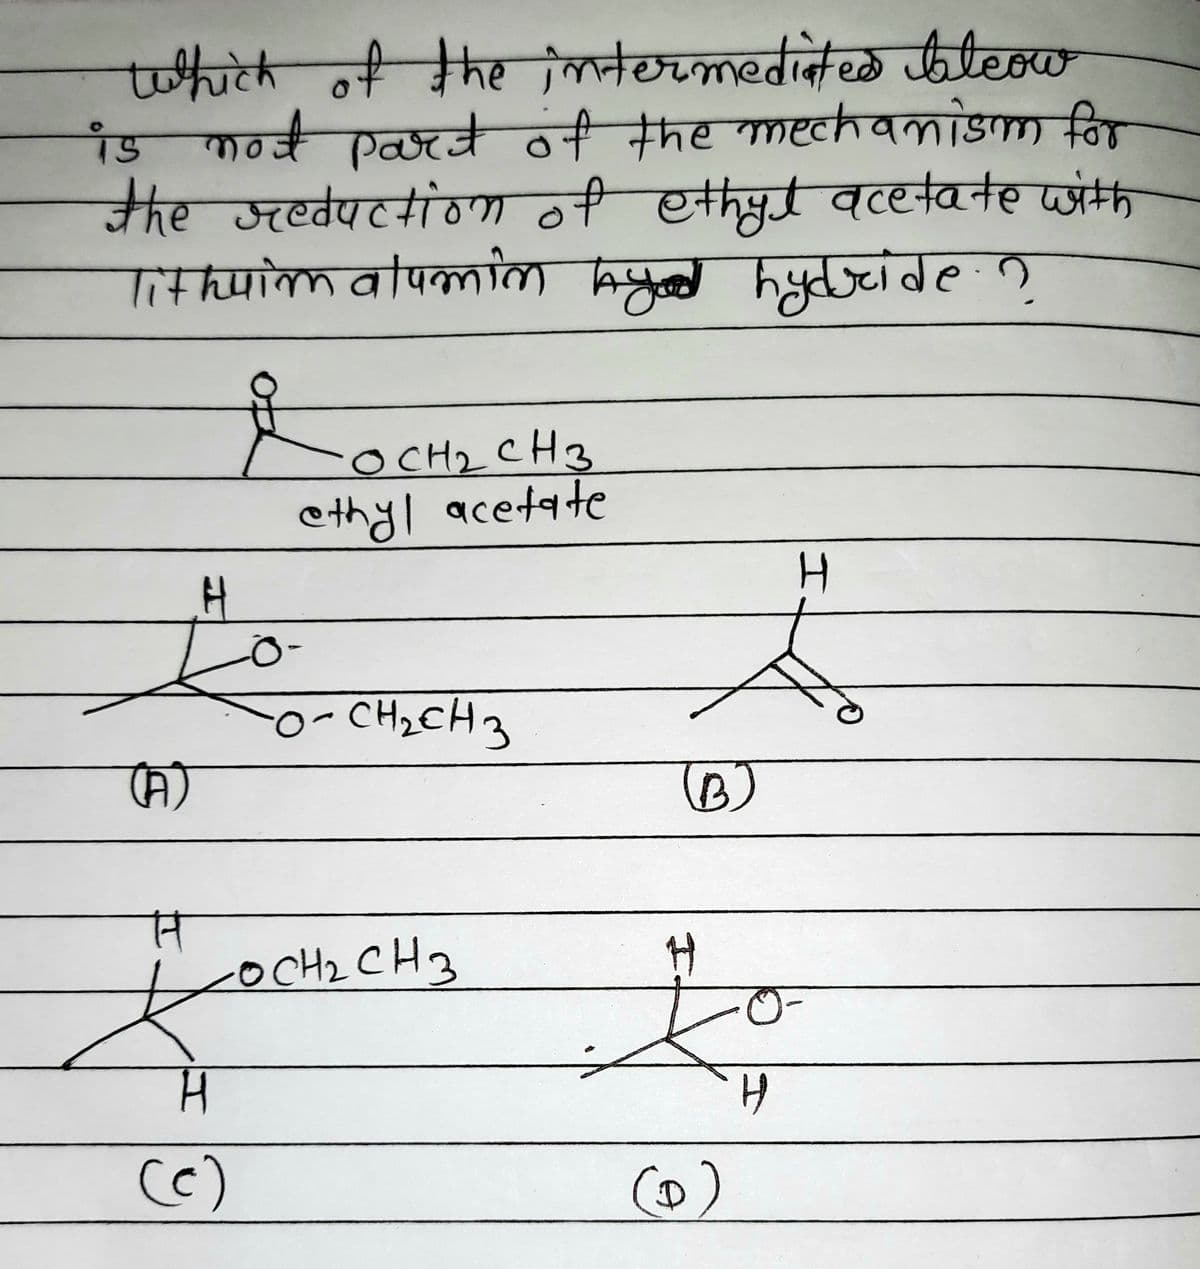 which of the intermediates bleow
is not part of the mechanism for
the reduction of ethyl acetate with
lithuim alumin hydride ?
O
OCH2 CH3
ethyl acetate
H
H
O-
O-CH2CH3
O
(A)
(B)
H
OCH2 CH3
H
O-
H
H
(C)
(D)